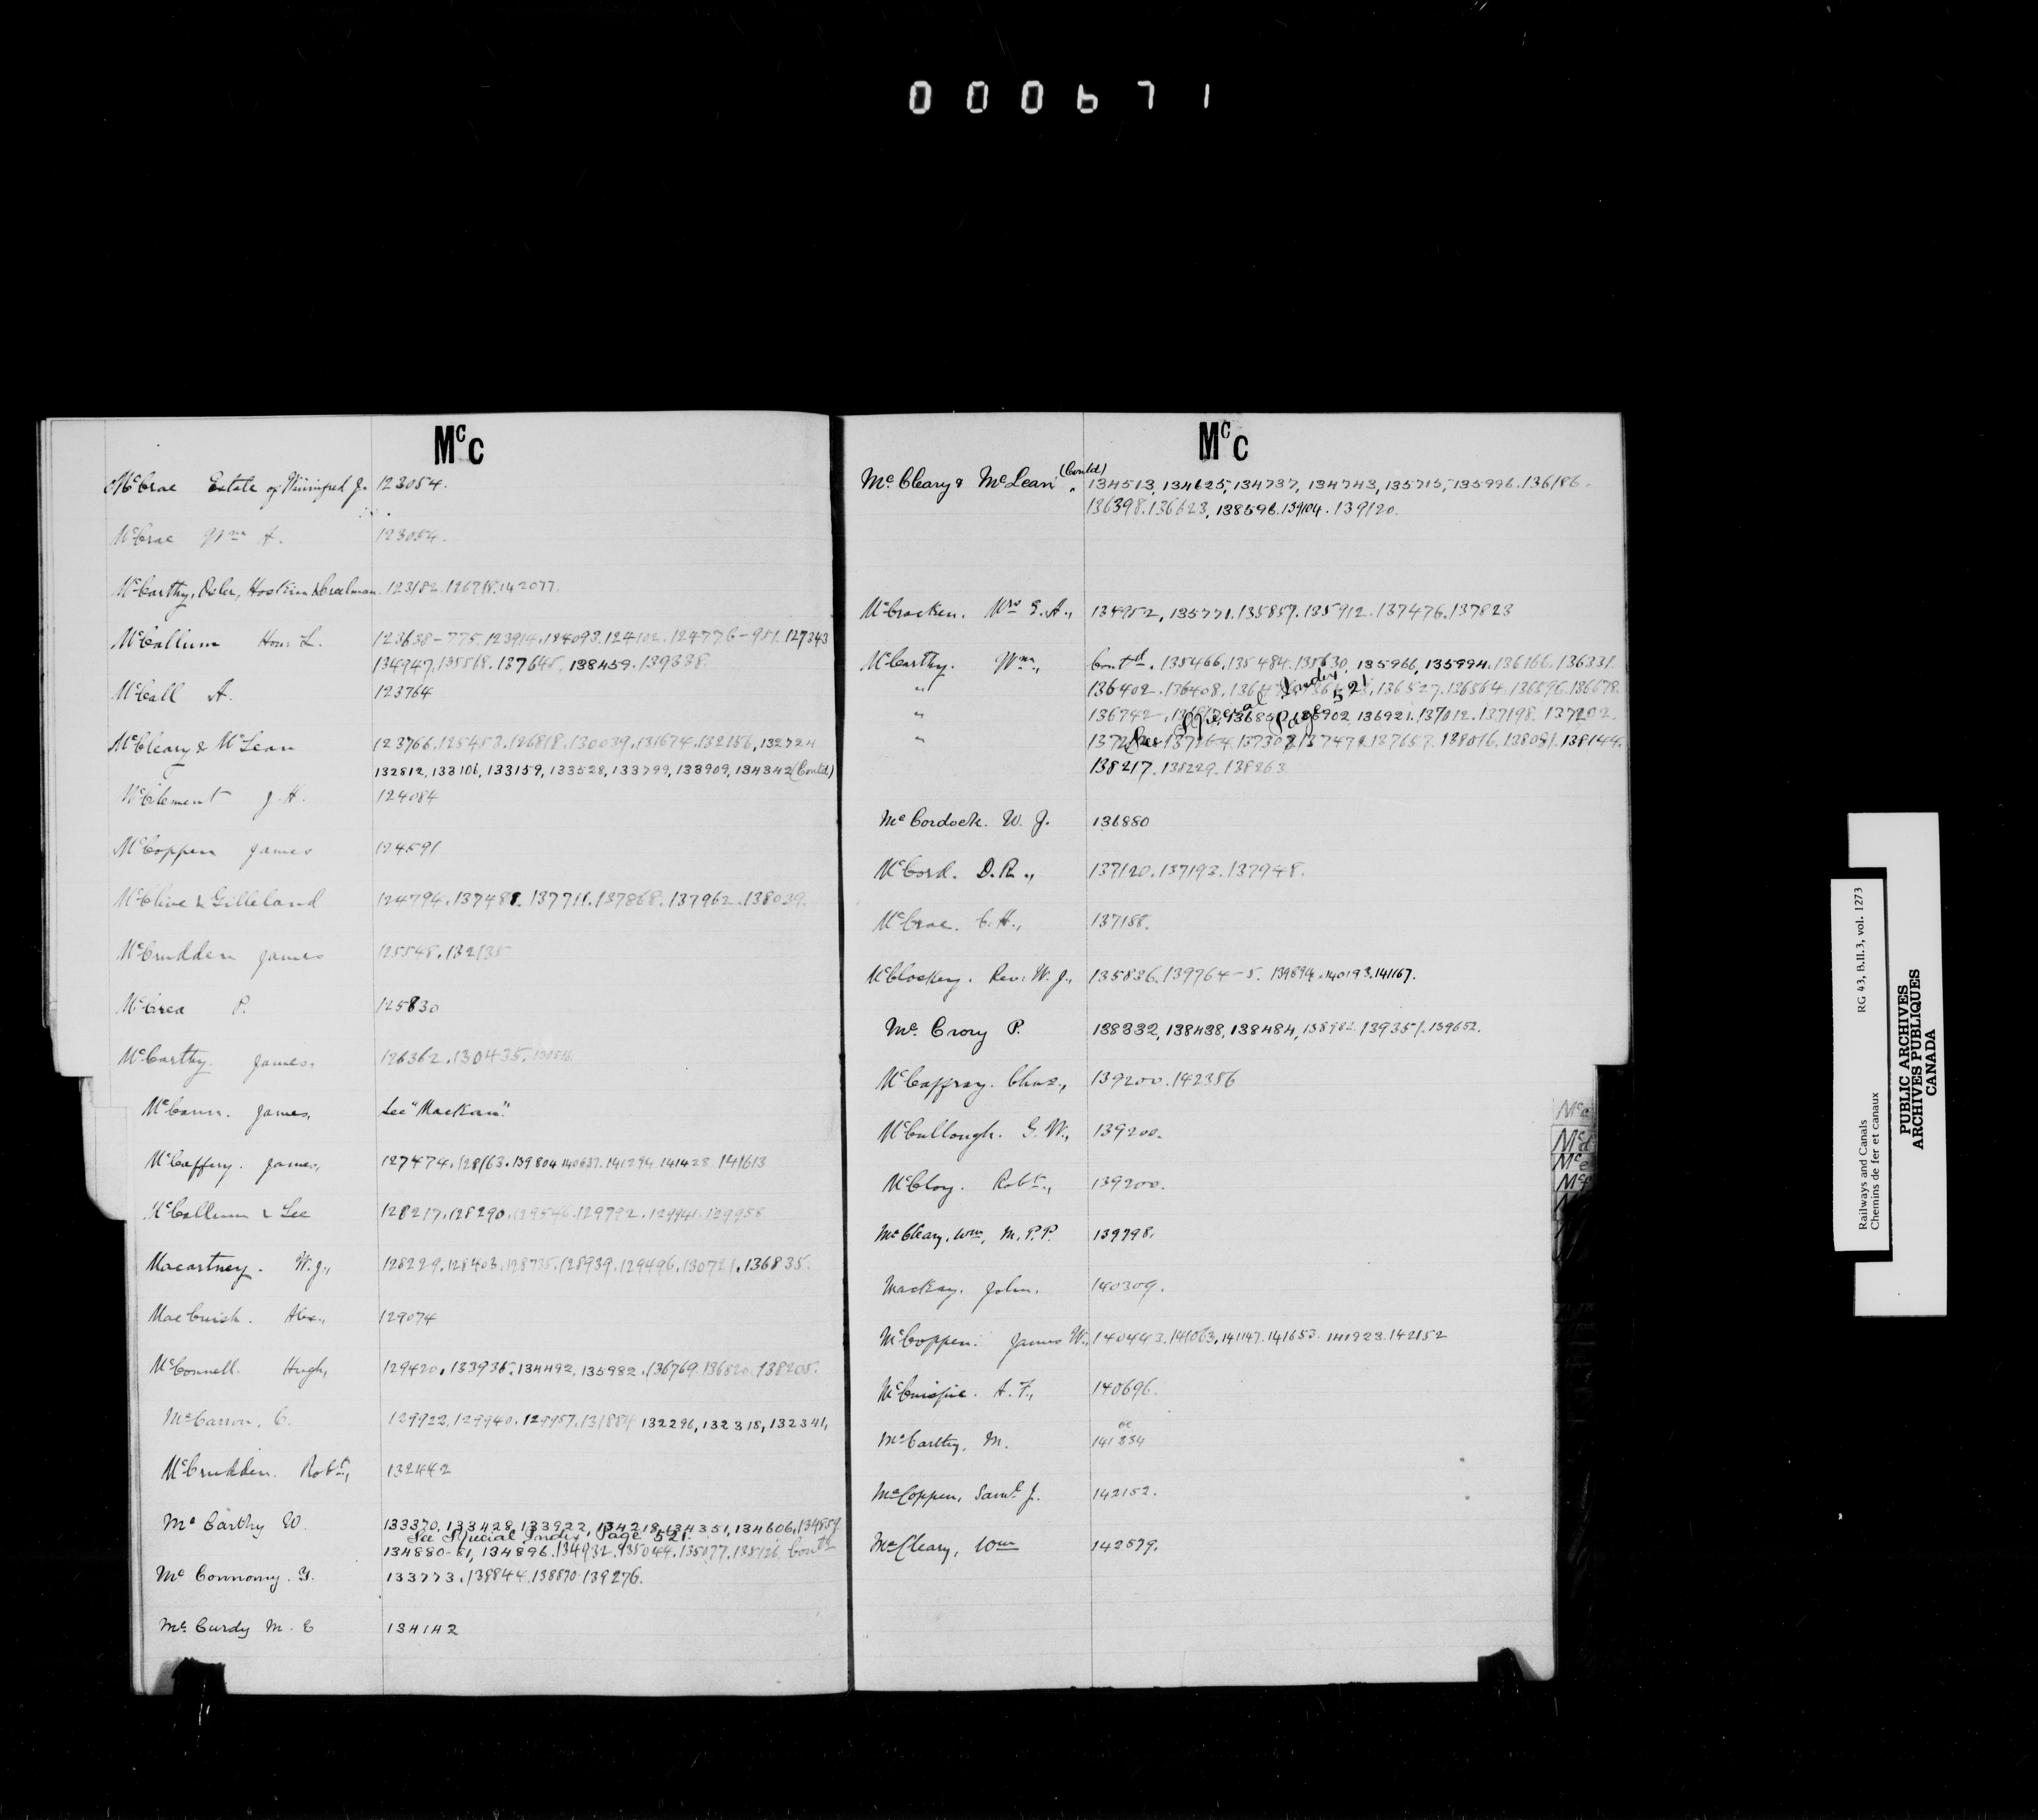 000671
McC
McCrae Estate of Winnifred J. 123054.
McCrae Wm A. 123054.
McCarthy, Osler, Hoskin & Creelman. 123182.126718.142077.
McCallum Hon: L. 123638-775.123914.124093.124102.124776-951.127343
134947.135518.137645.138459.139338.
McCall A. 123764
McCleary & McLean 123766.125453.126818.130039.131674.132156,132724
132812,133106,133159,133528,133799,133909,134342 (Contd)
McClement J.H. 124084
McCoppen James 124591
McClive & Gilleland 124794.137488.137711.137868.137962.138039.
McCrudden James 125548.132135
McCrea P. 125830
McCarthy. James. 126362.130435.
McCann. James, See "MacKan".
McCaffery. James, 127474.128163.139804.140837.141294.141428.141613
McCallum & Lee 128217.128290.129546.129792.129941.129958
Macartney. W.J., 128229.128403.128735.128939.129496.130721.136835.
MacCuish. Alex., 129074
McConnell. Hugh, 129420.133935.134492.135982.136769.136820.138205.
McCarron, C. 129922.129940.129957.131884 132296,132318,132341,
McCrudden. Robt., 132442
McCarthy W. 133370,133428,133922,134218,134351,134606,134859
See Special Index, Page 521.
134880-81,134896.134932.135044.135077.135126. Contd
McConnomy. 133773.138844.138870.139276.
McCurdy M.E 134142
McC
McCleary & McLean (Contd) 134513,134625,134737,134743,135715,135996.136186.
136398.136623,138596.139104.139120.
McCracken. Mrs E.A., 134952,135771.135857.135912.137476.137823
McCarthy. Wm., Contd.135466.135484.135630.135966,135994.136166.136331.
" 136402.136408. 136527.136564.136596.136678.
" 136742. 136850.136902.136921.137012.137198.137202.
" 137264.137308.137479.137657.138016.138081.138144.
See Special Index Page 521
138217.138229.138263
McCordock. W.J. 136880
McCord. D.R., 137120.137193.137948.
McCrae. C.H., 137188.
McCloskey. Rev: W.J., 135836.139764-5. 139894.140193.141167.
McCrory P. 138332,138438,138484,138982.139351.139652.
McCaffray. Chas., 139200.142356
McCullough. G.W., 139200.
McCloy. Robt., 139200.
McCleary, Wm, M.P.P. 139798.
MacKay. John. 140309.
McCoppen. James W., 140443.141063,141147.141653.141923.142152
McCuispie. A.F., 140696.
McCarthy, M. 141834
McCoppen, Saml J. 142152.
McCleary, Wm 142579.
Mcc
Mcd
Mce
Mcf
Railways and Canals RG 43, B.II.3, vol. 1273
Chemins de fer et canaux
PUBLIC ARCHIVES
ARCHIVES PUBLIQUES
CANADA